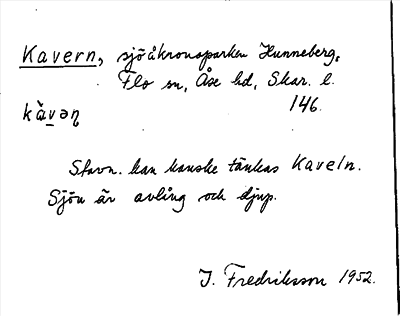 Kavern, sjö å kronoparken Hunneberg,
Flo sn, Åse hd, Skar. l.
146.
kàvəɳ
Stavn. kan kanske tänkas Kaveln.
Sjön är avlång och djup.
I. Fredriksson 1952.